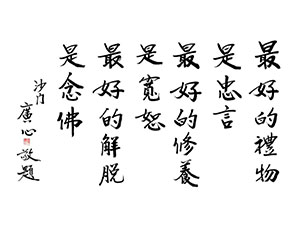 最好的禮物
是忠言
最好的修養
是寬恕
最好的解脱
是念佛
沙门
廣心
敬題